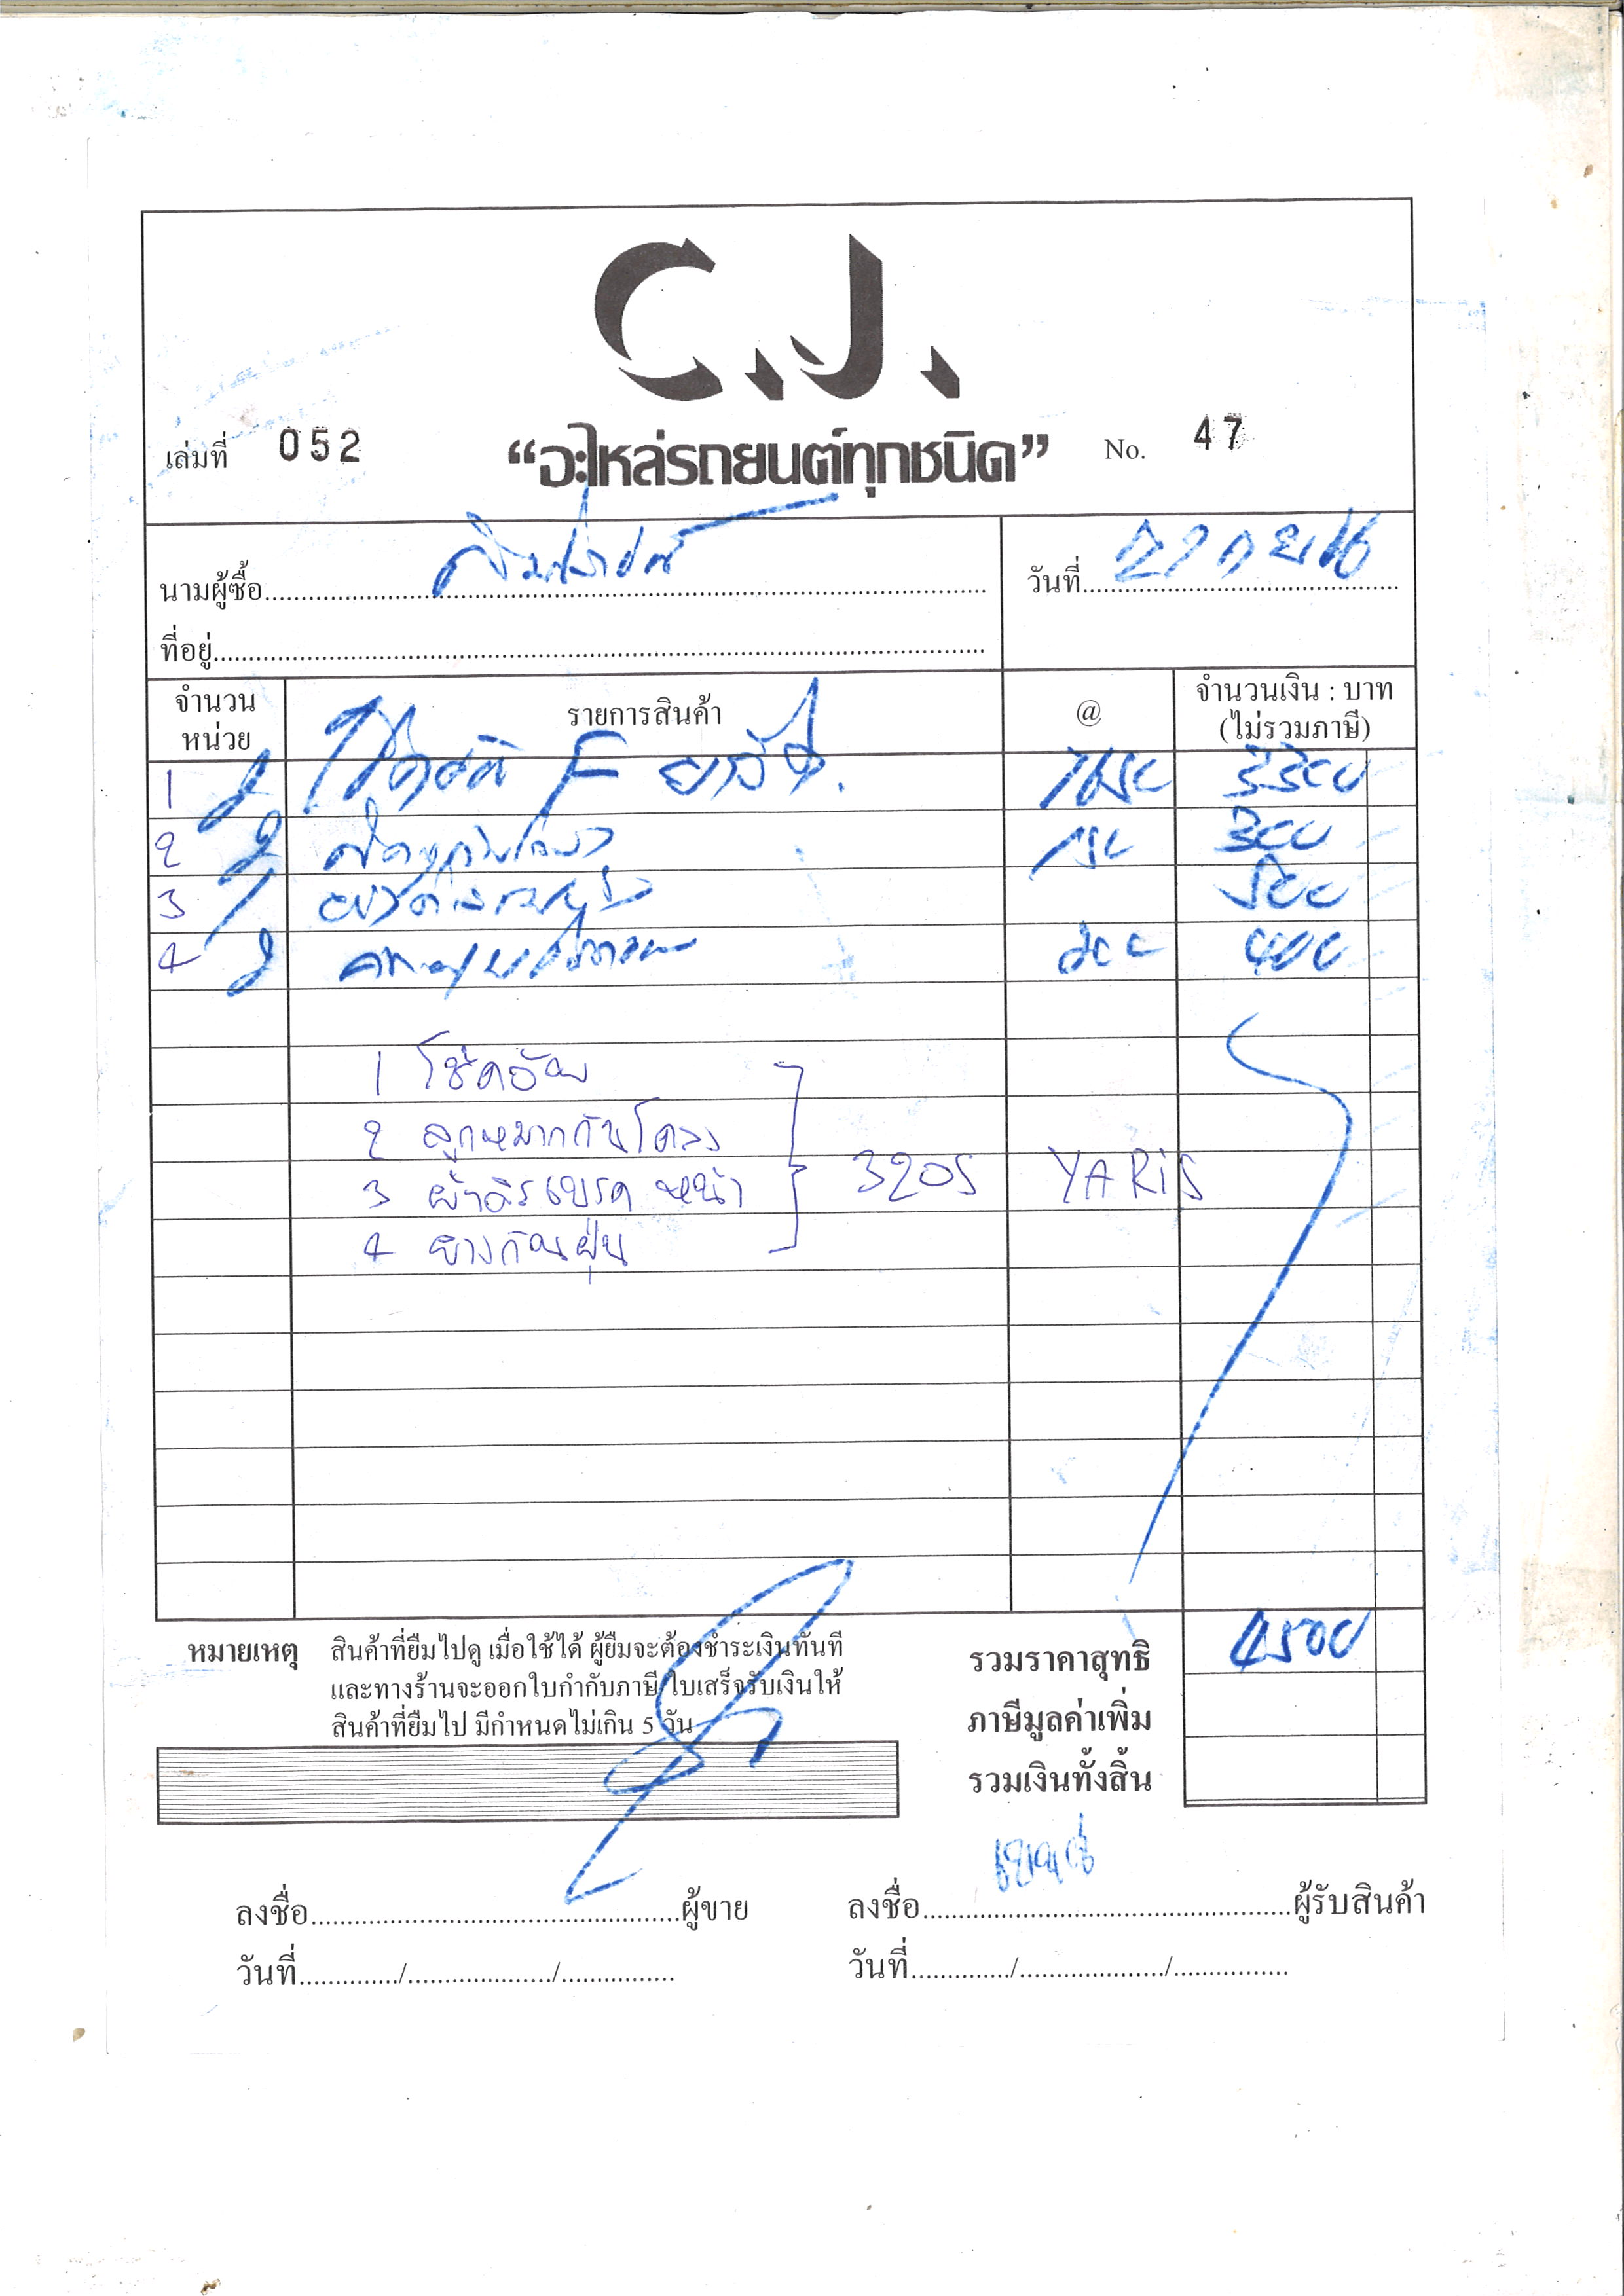 C.J.
เล่มที่ 052 “อะไหล่รถยนต์ทุกชนิด” No. 47
นามผู้ซื้อ วันที่
ที่อยู่
จำนวน หน่วย รายการสินค้า @ จำนวนเงิน : บาท (ไม่รวมภาษี)
1 2 F 1650 3300
2 2 150 300
3 1 500
4 2 200 400
1 โช๊คอัพ
2 ลูกหมากกันโคลง
3 ผ้าดิสเบรค หน้า 3205 YARiS
4 ยางกันฝุ่น
หมายเหตุ สินค้าที่ยืมไปดู เมื่อใช้ได้ ผู้ยืมจะต้องชำระเงินทันที รวมราคาสุทธิ 4500
และทางร้านจะออกใบกำกับภาษี/ใบเสร็จรับเงินให้
สินค้าที่ยืมไป มีกำหนดไม่เกิน 5 วัน ภาษีมูลค่าเพิ่ม
รวมเงินทั้งสิ้น
ลงชื่อ ผู้ขาย ลงชื่อ ผู้รับสินค้า
วันที่ / / วันที่ / /